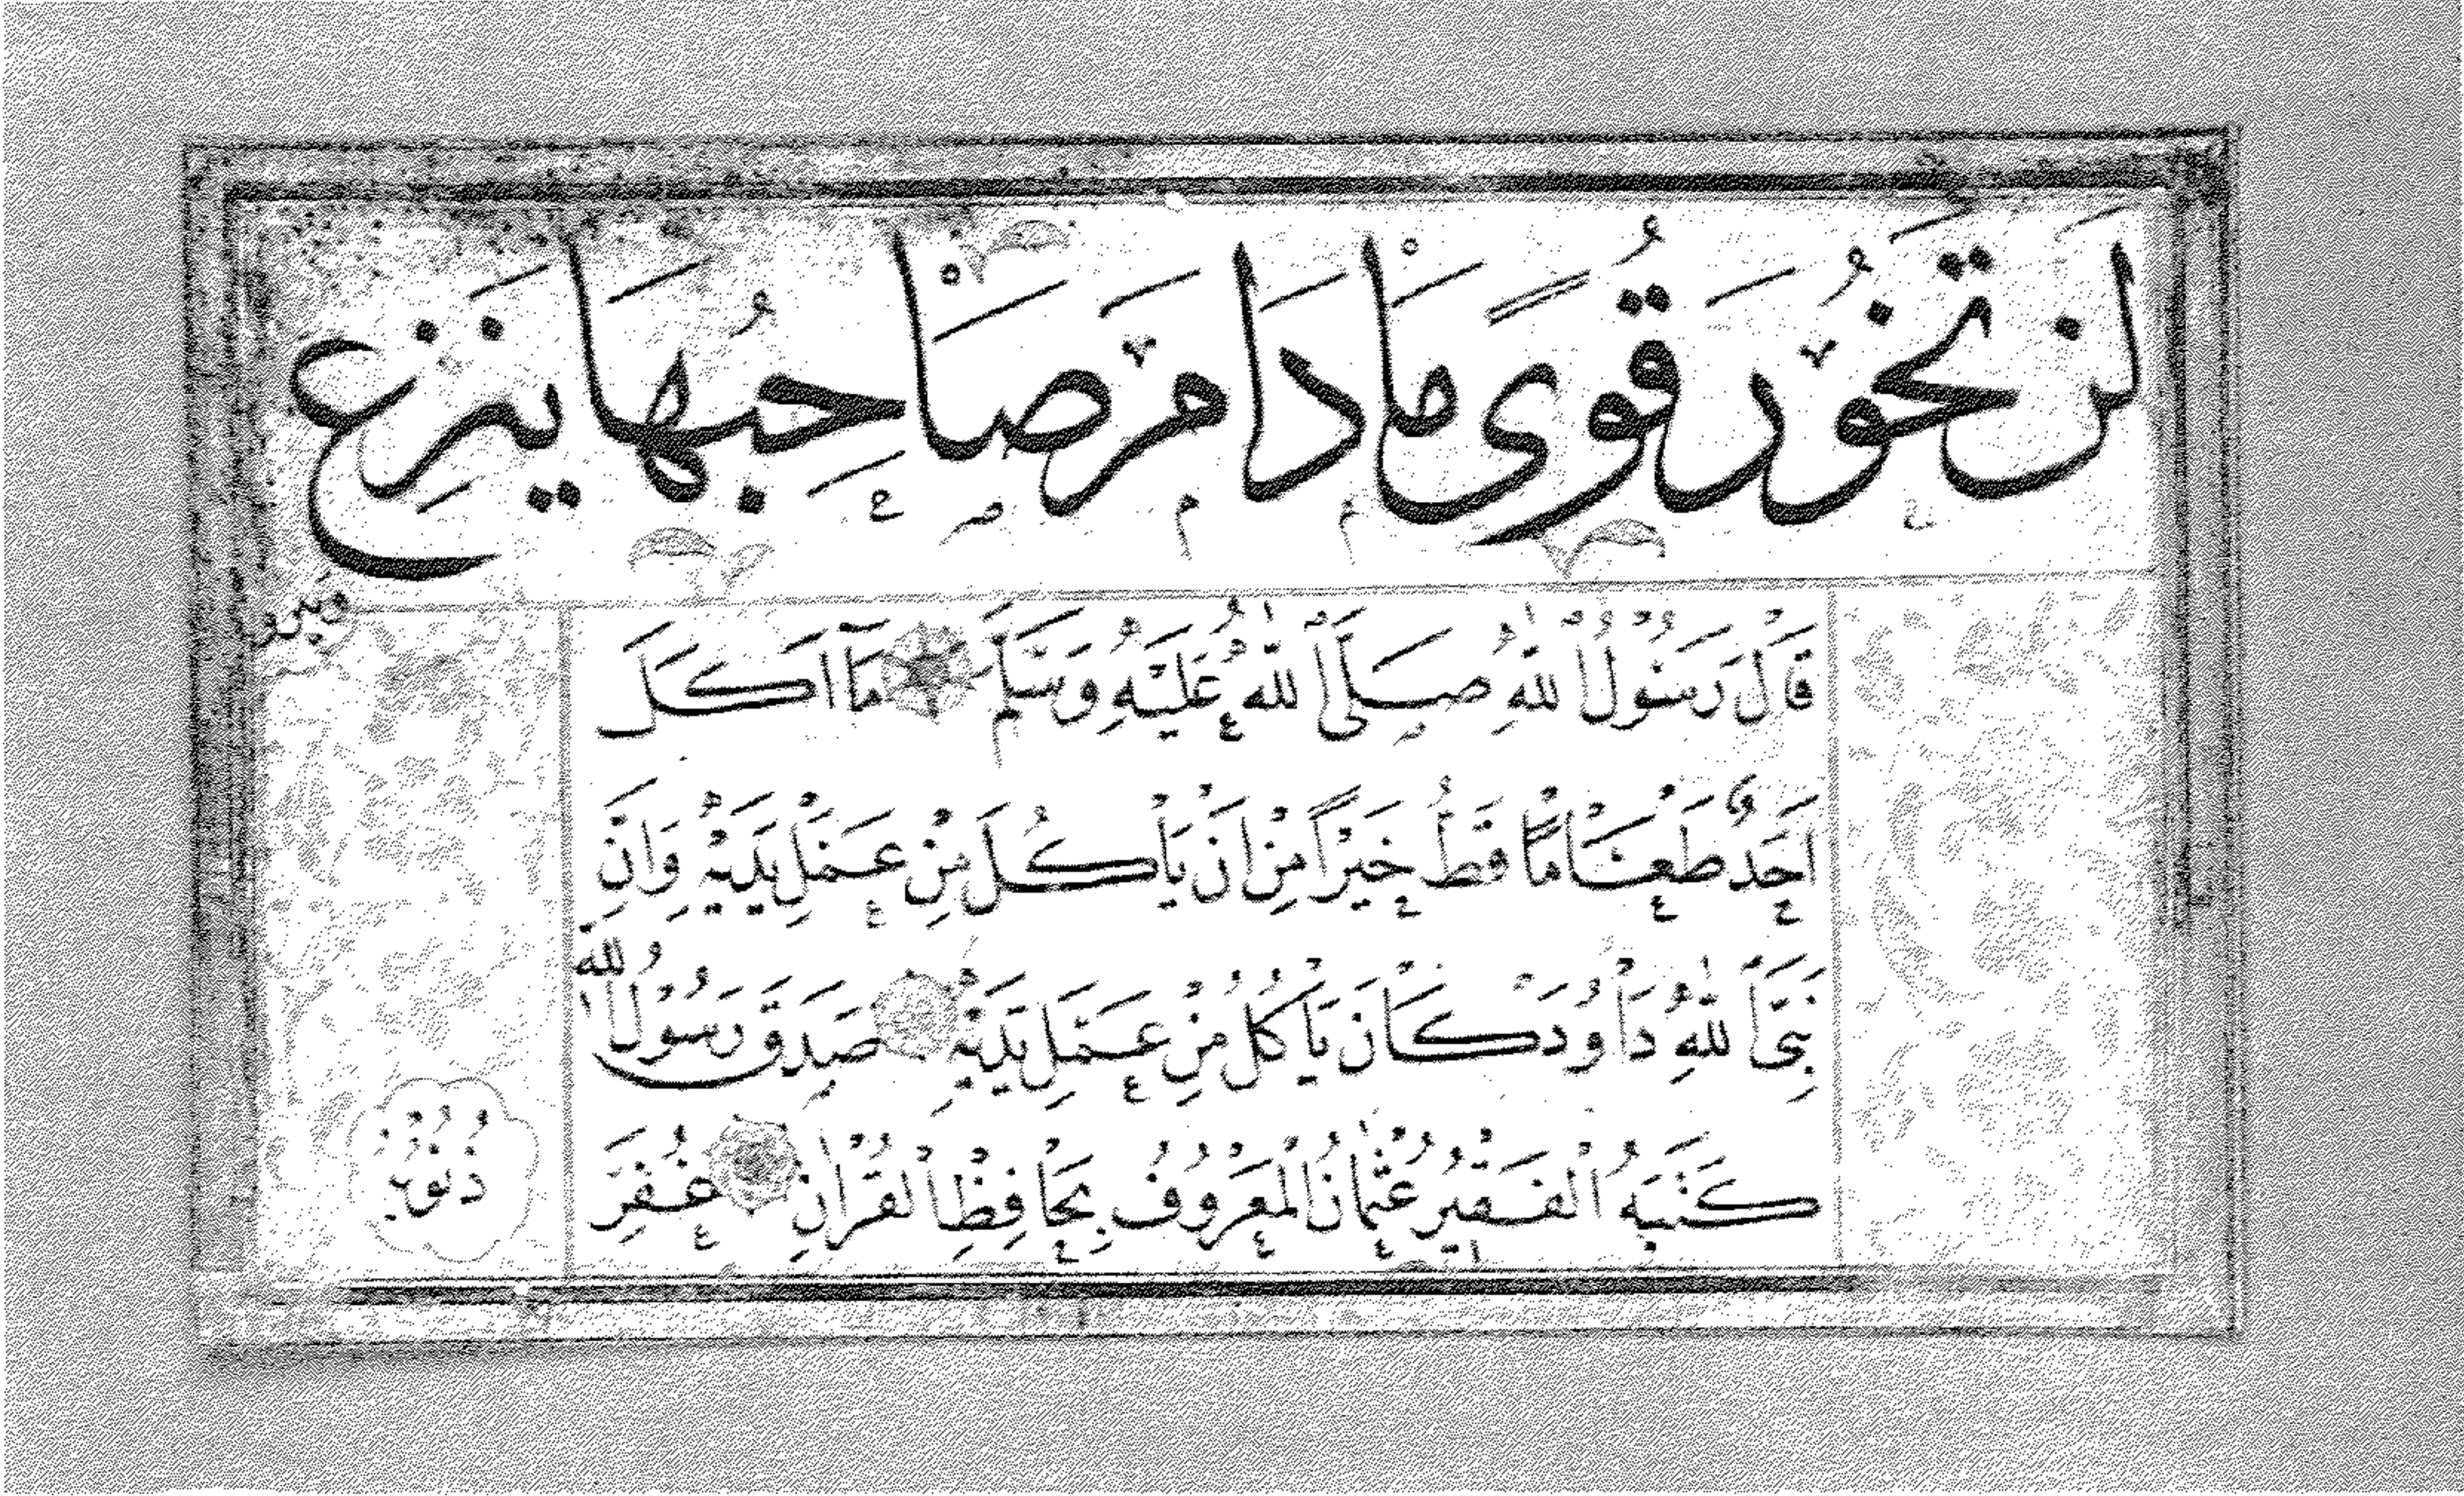 لَنْ تَخُورَ قُوًى مَا دَامَ صَاحِبُهَا يَنْزِعُ
وينزو
قَالَ رَسُولُ اللّٰهِ صَلَّى اللّٰهُ عَلَيْهِ وَسَلَّمَ مَا أَكَلَ
أَحَدٌ طَعَامًا قَطُّ خَيْرًا مِنْ أَنْ يَأْكُلَ مِنْ عَمَلِ يَدَيْهِ وَإِنَّ
نَبِيَّ اللّٰهِ دَاوُدَ كَانَ يَأْكُلُ مِنْ عَمَلِ يَدَيْهِ صَدَقَ رَسُولُ اللّٰه
كَتَبَهُ الْفَقِيرُ عُثْمَانُ الْمَعْرُوفُ بِحَافِظِ الْقُرْآنِ غُفِرَ
ذُنُوبُهُ